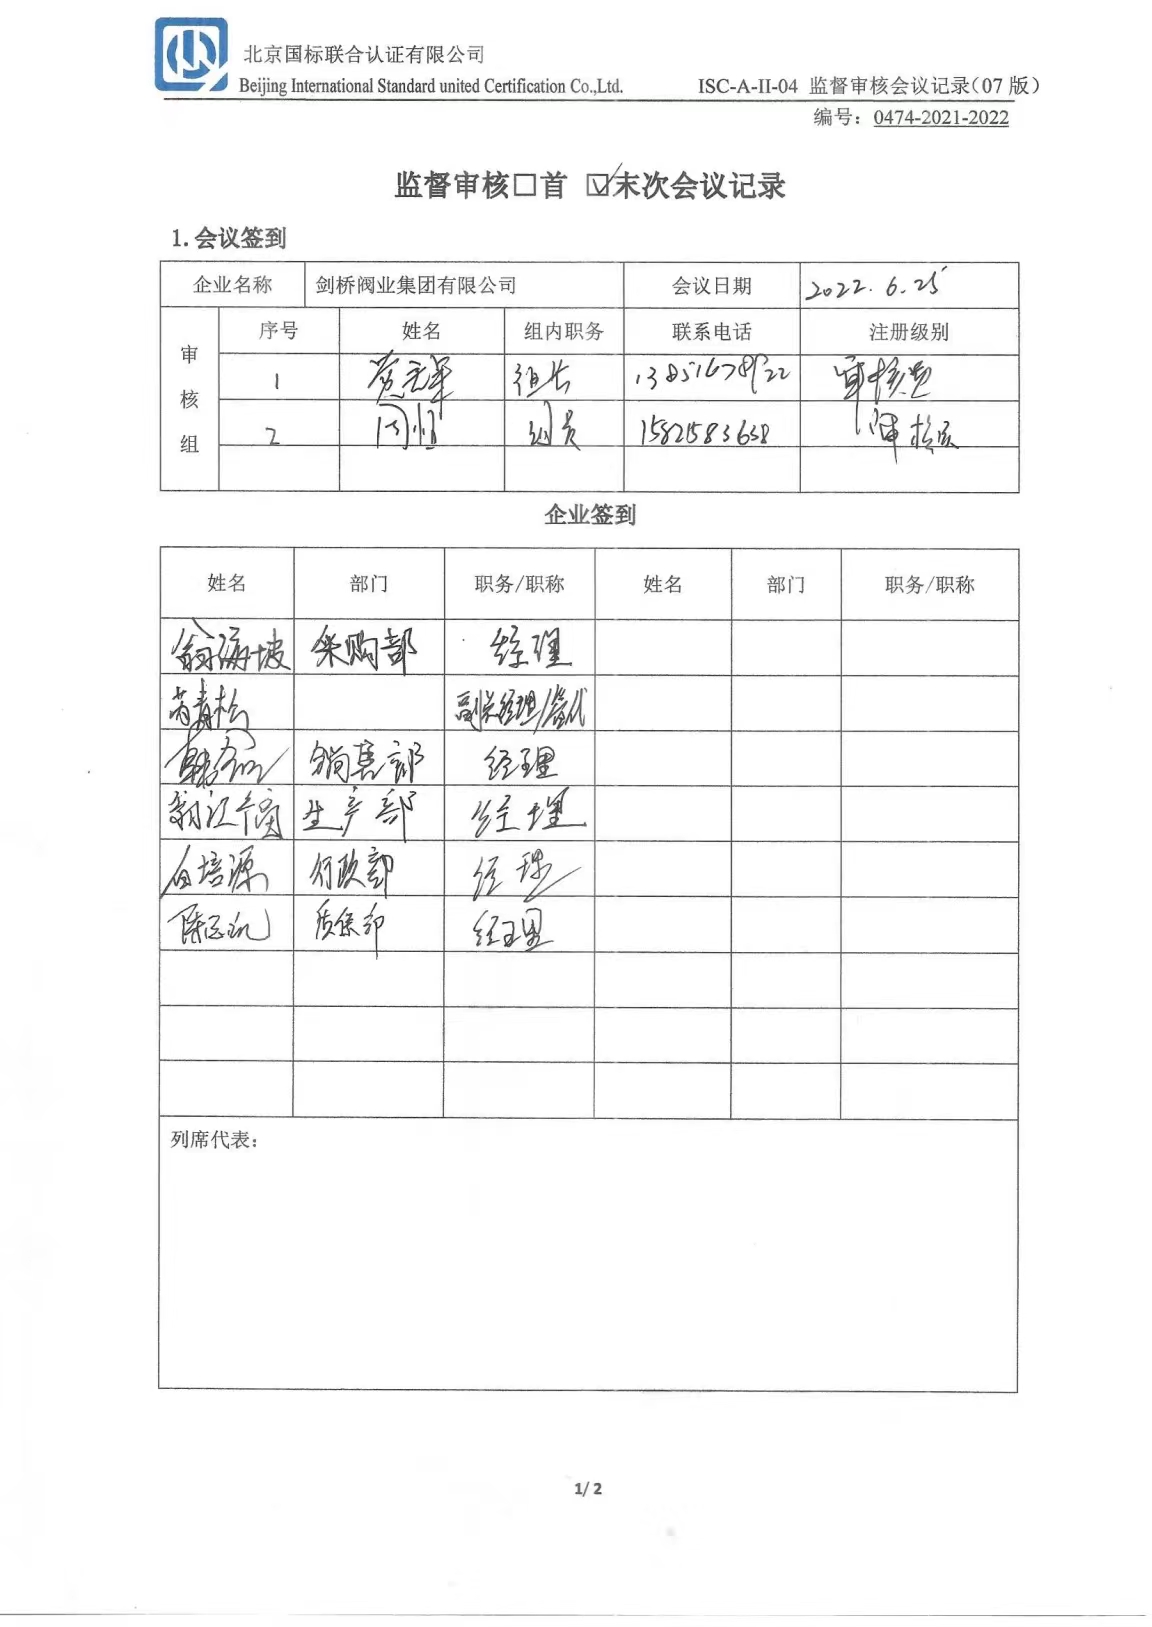 北京国标联合认证有限公司
Beijing International Standard united Certification Co.,Ltd. ISC-A-II-04 监督审核会议记录(07 版)
编号: 0474-2021-2022
监督审核□首 ☑末次会议记录
1.会议签到
企业名称 剑桥阀业集团有限公司 会议日期 2022.6.25
审核组 序号 姓名 组内职务 联系电话 注册级别
1 组长 审核员
2 周恒 组员 审核员
企业签到
姓名 部门 职务/职称 姓名 部门 职务/职称
翁海坡 采购部 经理
青松 副总经理/管代
销售部 经理
生产部 经理
白培源 行政部 经理
质保部 经理
列席代表:
1/ 2